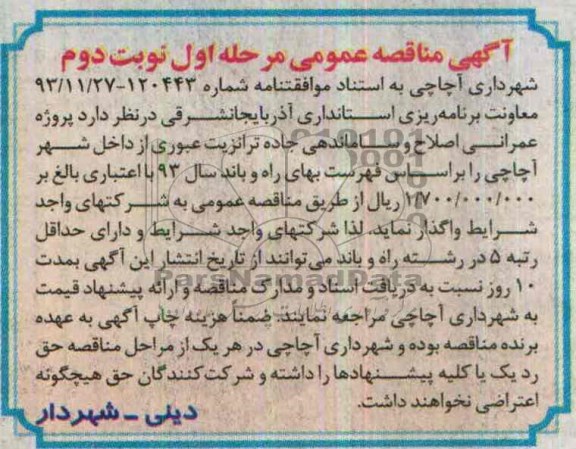 آگهی مناقصه عمومی مرحله اول نوبت دوم
شهرداری آچاچی به استناد موافقتنامه شماره ۱۲۰۴۴۳-۹۳/۱۱/۲۷
معاونت برنامه‌ریزی استانداری آذربایجانشرقی درنظر دارد پروژه
عمرانی اصلاح و ساماندهی جاده ترانزیت عبوری از داخل شهر
آچاچی را براساس فهرست بهای راه و باند سال ۹۳ با اعتباری بالغ بر
۱/۷۰۰/۰۰۰/۰۰۰ ریال از طریق مناقصه عمومی به شرکتهای واجد
شرایط واگذار نماید. لذا شرکتهای واجد شرایط و دارای حداقل
رتبه ۵ در رشته راه و باند می‌توانند از تاریخ انتشار این آگهی بمدت
۱۰ روز نسبت به دریافت اسناد و مدارک مناقصه و ارائه پیشنهاد قیمت
به شهرداری آچاچی مراجعه نمایند. ضمناً هزینه چاپ آگهی به عهده
برنده مناقصه بوده و شهرداری آچاچی در هر یک از مراحل مناقصه حق
رد یک یا کلیه پیشنهادها را داشته و شرکت‌کنندگان حق هیچگونه
اعتراضی نخواهند داشت.
دینی - شهردار
ParsNamadData